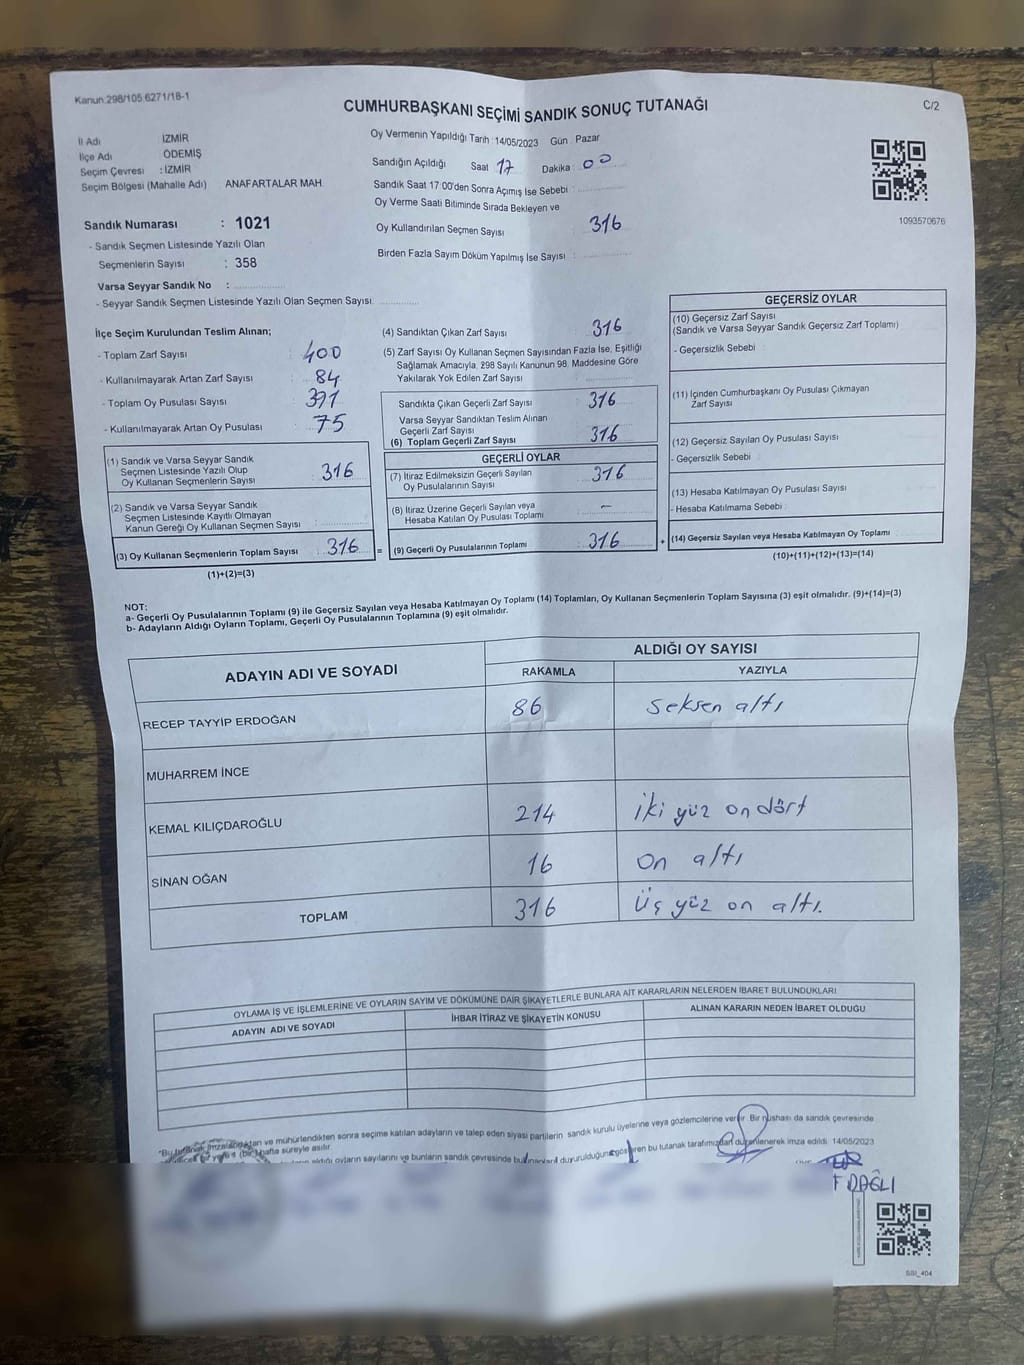 Kanun:298/105 6271/18-1
CUMHURBAŞKANI SEÇİMİ SANDIK SONUÇ TUTANAĞI
C/2
İl Adı İZMİR
İlçe Adı ÖDEMİŞ
Seçim Çevresi : İZMİR
Seçim Bölgesi (Mahalle Adı) ANAFARTALAR MAH.
Oy Vermenin Yapıldığı Tarih : 14/05/2023 Gün Pazar
Sandığın Açıldığı Saat 17 Dakika 00
Sandık Saat 17:00'den Sonra Açılmış İse Sebebi
Oy Verme Saati Bitiminde Sırada Bekleyen ve
Oy Kullandırılan Seçmen Sayısı 316
Birden Fazla Sayım Döküm Yapılmış İse Sayısı
1093570676
Sandık Numarası : 1021
- Sandık Seçmen Listesinde Yazılı Olan
Seçmenlerin Sayısı : 358
Varsa Seyyar Sandık No :
- Seyyar Sandık Seçmen Listesinde Yazılı Olan Seçmen Sayısı:
İlçe Seçim Kurulundan Teslim Alınan;
- Toplam Zarf Sayısı : 400
- Kullanılmayarak Artan Zarf Sayısı : 84
- Toplam Oy Pusulası Sayısı : 391
- Kullanılmayarak Artan Oy Pusulası : 75
(1) Sandık ve Varsa Seyyar Sandık
Seçmen Listesinde Yazılı Olup
Oy Kullanan Seçmenlerin Sayısı : 316
(2) Sandık ve Varsa Seyyar Sandık
Seçmen Listesinde Kayıtlı Olmayan
Kanun Gereği Oy Kullanan Seçmen Sayısı :
(3) Oy Kullanan Seçmenlerin Toplam Sayısı : 316
(1)+(2)=(3)
(4) Sandıktan Çıkan Zarf Sayısı : 316
(5) Zarf Sayısı Oy Kullanan Seçmen Sayısından Fazla İse, Eşitliği
Sağlamak Amacıyla, 298 Sayılı Kanunun 98. Maddesine Göre
Yakılarak Yok Edilen Zarf Sayısı :
Sandıkta Çıkan Geçerli Zarf Sayısı : 316
Varsa Seyyar Sandıktan Teslim Alınan
Geçerli Zarf Sayısı
(6) Toplam Geçerli Zarf Sayısı : 316
GEÇERLİ OYLAR
(7) İtiraz Edilmeksizin Geçerli Sayılan
Oy Pusulalarının Sayısı : 316
(8) İtiraz Üzerine Geçerli Sayılan veya
Hesaba Katılan Oy Pusulası Toplamı : -
= (9) Geçerli Oy Pusulalarının Toplamı : 316
GEÇERSİZ OYLAR
(10) Geçersiz Zarf Sayısı
(Sandık ve Varsa Seyyar Sandık Geçersiz Zarf Toplamı)
- Geçersizlik Sebebi :
(11) İçinden Cumhurbaşkanı Oy Pusulası Çıkmayan
Zarf Sayısı
(12) Geçersiz Sayılan Oy Pusulası Sayısı
- Geçersizlik Sebebi :
(13) Hesaba Katılmayan Oy Pusulası Sayısı
- Hesaba Katılmama Sebebi :
+ (14) Geçersiz Sayılan veya Hesaba Katılmayan Oy Toplamı
(10)+(11)+(12)+(13)=(14)
NOT:
a- Geçerli Oy Pusulalarının Toplamı (9) ile Geçersiz Sayılan veya Hesaba Katılmayan Oy Toplamı (14) Toplamları, Oy Kullanan Seçmenlerin Toplam Sayısına (3) eşit olmalıdır. (9)+(14)=(3)
b- Adayların Aldığı Oyların Toplamı, Geçerli Oy Pusulalarının Toplamına (9) eşit olmalıdır.
ADAYIN ADI VE SOYADI
ALDIĞI OY SAYISI
RAKAMLA YAZIYLA
RECEP TAYYİP ERDOĞAN 86 seksen altı
MUHARREM İNCE
KEMAL KILIÇDAROĞLU 214 iki yüz on dört
SİNAN OĞAN 16 on altı
TOPLAM 316 üç yüz on altı.
OYLAMA İŞ VE İŞLEMLERİNE VE OYLARIN SAYIM VE DÖKÜMÜNE DAİR ŞİKAYETLERLE BUNLARA AİT KARARLARIN NELERDEN İBARET BULUNDUKLARI
ADAYIN ADI VE SOYADI İHBAR İTİRAZ VE ŞİKAYETİN KONUSU ALINAN KARARIN NEDEN İBARET OLDUĞU
ve mühürlendikten sonra seçime katılan adayların ve talep eden siyasi partilerin sandık kurulu üyelerine veya gözlemcilerine verilir. Bir nüshası da sandık çevresinde
(bir) hafta süreyle asılır.
aldığı oyların sayılarını ve bunların sandık çevresinde duyurulduğunu gösteren bu tutanak tarafımızdan düzenlenerek imza edildi. 14/05/2023
F DAĞLI
SBİ_404